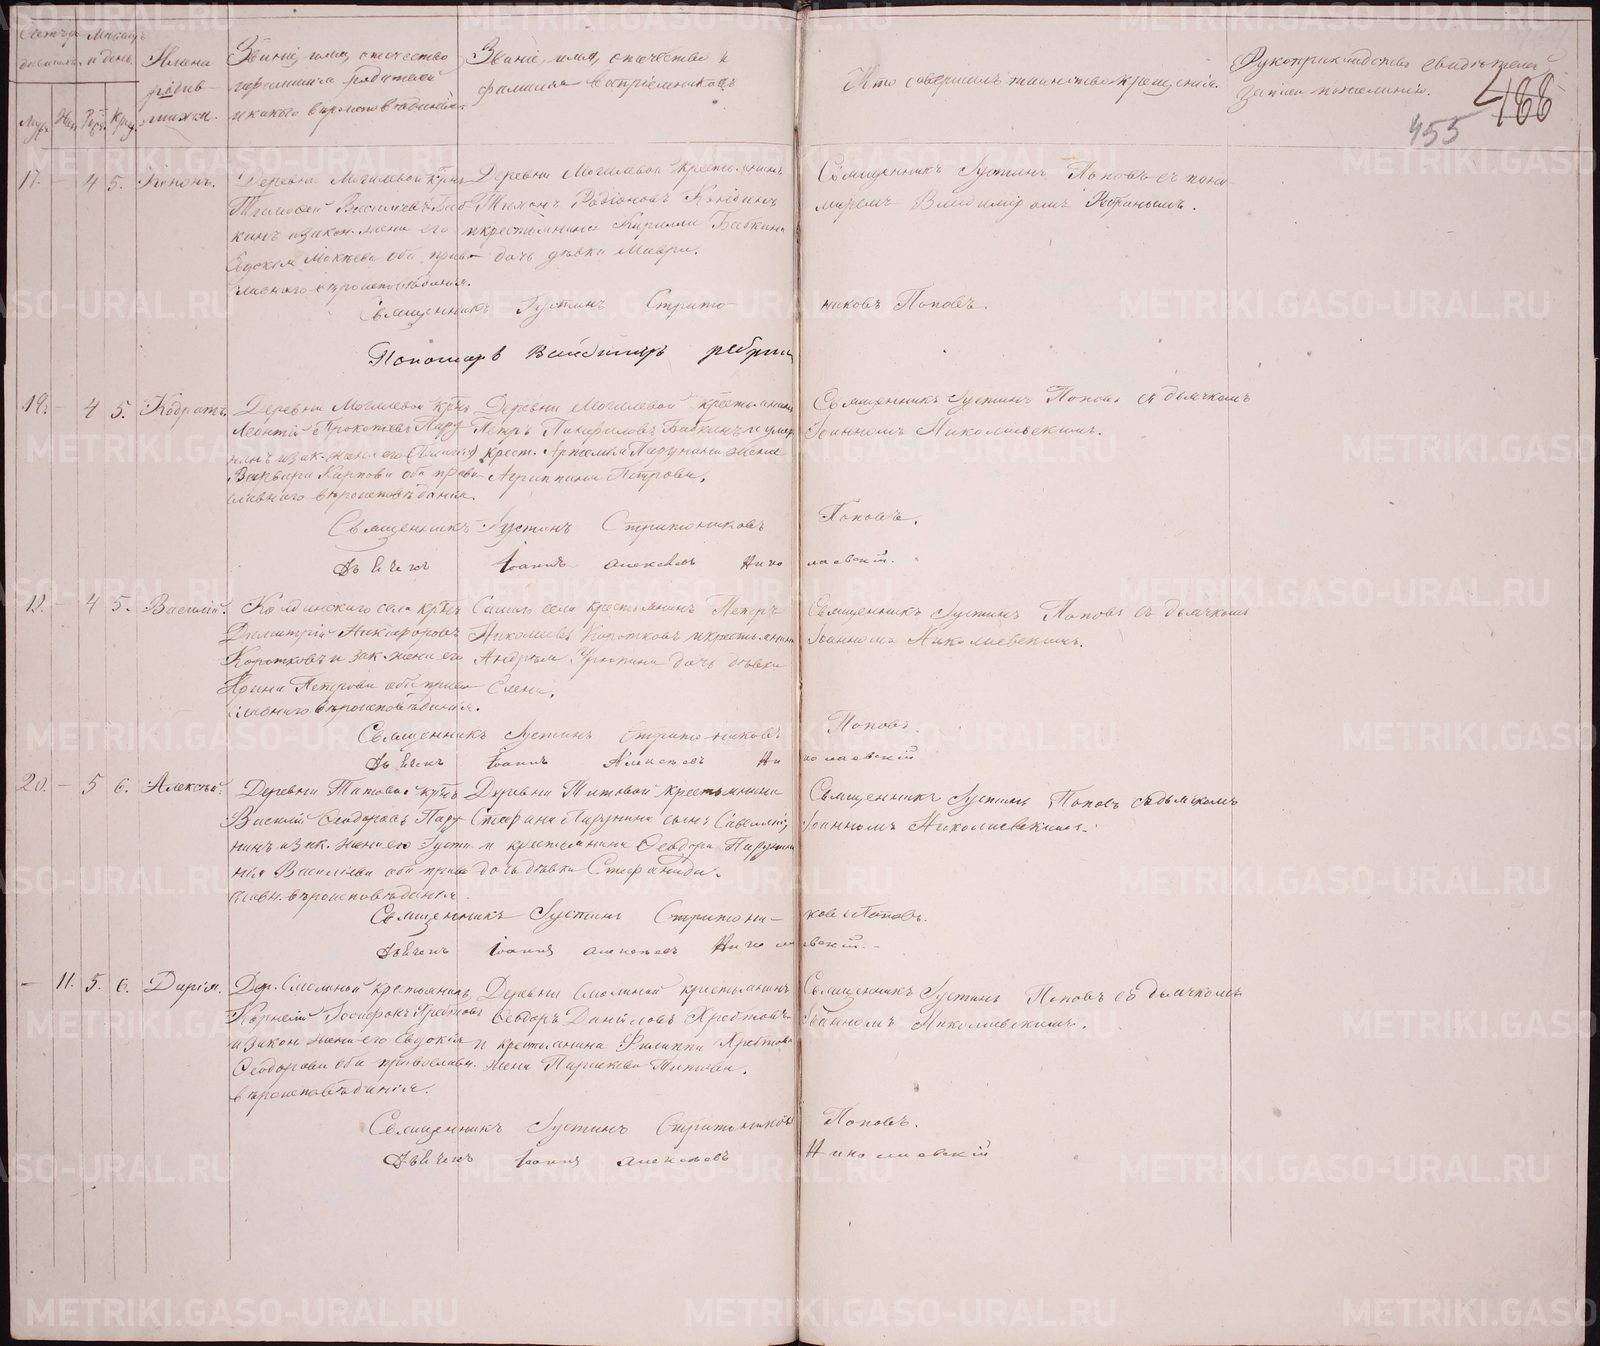 Счетъ ро- Мѣсяцъ
дившихъ. и день.
Имена
родив-
шихся.
Званіе, имя, отечество
фамилія родителей
и какого вѣроисповѣданія
Званіе, имя, отечество и
фамилія воспріемниковъ
Кто совершалъ таинство крещенія.
Рукоприкладство свидѣтелей
записи по желанію.
455 488
17. — 4 5. Кононъ.
Деревни Могилевой крест.
Тимофей Василіевъ Баб
кинъ и закон. жена его
Мокѣева оба право-
славнаго вѣроисповѣданія.
Деревни Могилевой крестьянинъ
Тихонъ Родіоновъ
и крестьянина Кирилла Бабкина
дочь дѣвка Мавра.
Священникъ Іустинъ Поповъ съ поно-
маремъ Владиміромъ
Священникъ Іустинъ Стратониковъ Поповъ.
Пономарь
18. — 4 5. Кодратъ.
Деревни Могилевой крест.
Леонтій Прокопьевъ Пару
нинъ и зак. жена его
Карпова оба право-
славнаго вѣроисповѣданія.
Деревни Могилевой крестьянинъ
Петръ Панфиловъ Бабкинъ и умер.
крест. Артемія Парунина жена
Агриппина Петрова.
Священникъ Іустинъ Поповъ съ дьячкомъ
Іоанномъ Николаевскимъ.
Священникъ Іустинъ Стратониковъ Поповъ.
Дьячекъ Іоаннъ Алексѣевъ Николаевскій.
19. — 4 5. Василій.
села крест.
Димитрій Никифоровъ
Коротковъ и зак. жена его
Петрова оба право
славнаго вѣроисповѣданія.
села крестьянинъ Петръ
Николаевъ Коротковъ и крестьянина
Андрея дочь дѣвка
Елена.
Священникъ Іустинъ Поповъ съ дьячкомъ
Іоанномъ Николаевскимъ.
Священникъ Іустинъ Стратониковъ Поповъ.
Дьячекъ Іоаннъ Алексѣевъ Николаевскій
20. — 5 6. Алексѣй.
Деревни Титовой крест.
Василій Ѳеодоровъ Пару
нинъ и зак. жена его Іусти
нія Василіева оба право
славн. вѣроисповѣданія.
Деревни Титовой крестьянина
Стефана Парунина сынъ Савеллій
и крестьянина Ѳеодора Парунина
дочь дѣвка Стефанида.
Священникъ Іустинъ Поповъ съ дьячкомъ
Іоанномъ Николаевскимъ.
Священникъ Іустинъ Стратониковъ Поповъ.
Дьячекъ Іоаннъ Алексѣевъ Николаевскій.
— 11. 5. 6. Дарія.
Дер. Смолиной крестьянинъ
Корнелій Іосифовъ Хребтовъ
и закон. жена его Евдокія
Ѳеодорова оба православн.
вѣроисповѣданія.
Деревни Смолиной крестьянинъ
Ѳеодоръ Даніиловъ Хребтовъ
и крестьянина Филиппа Хребтова
жена Параскева Титова.
Священникъ Іустинъ Поповъ съ дьячкомъ
Іоанномъ Николаевскимъ.
Священникъ Іустинъ Стратониковъ Поповъ.
Дьячекъ Іоаннъ Алексѣевъ Николаевскій
METRIKI.GASO-URAL.RU